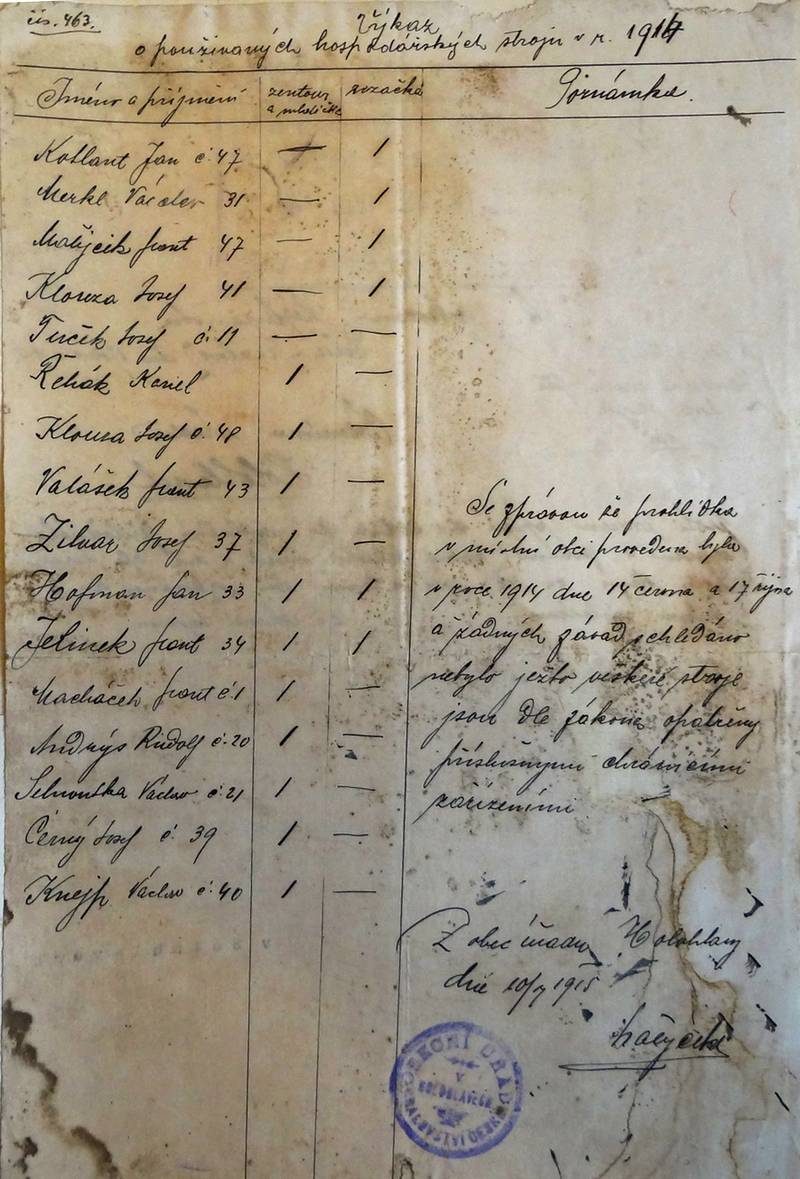 čís. 463.
Výkaz
o používaných hospodářských strojů v r. 1914
Jméno a příjmení žentour a mlátička řezačka Poznámka.
Kotlant Jan č. 47 — /
Merkl Václav 31 — /
Matějček frant 47 — /
Klouza Josef 41 — /
Turček Josef č. 11 — —
Řehák Karel / —
Klouza Josef č. 48 / —
Valášek frant 43 / —
Zilvar Josef 37 / —
Hofman Jan 33 / /
Jelinek frant 34 / /
Macháček frant č. 1 / —
Andrýs Rudolf č. 20 / —
Václav č. 21 / —
Černý Josef č. 39 / —
Knejp Václav č. 40 / —
Se zprávou že prohlídka
v místní obci provedena byla
v roce 1914 dne 14 června a 17 října
a žádných závad shledáno
nebylo ježto veškeré stroje
jsou dle zákona opatřeny
příslušnými chránícími
zařízeními
Z obec úřadu Holohlavy
dne 10/7 1915
OBECNÍ ÚŘAD
V
HOLOHLAVECH